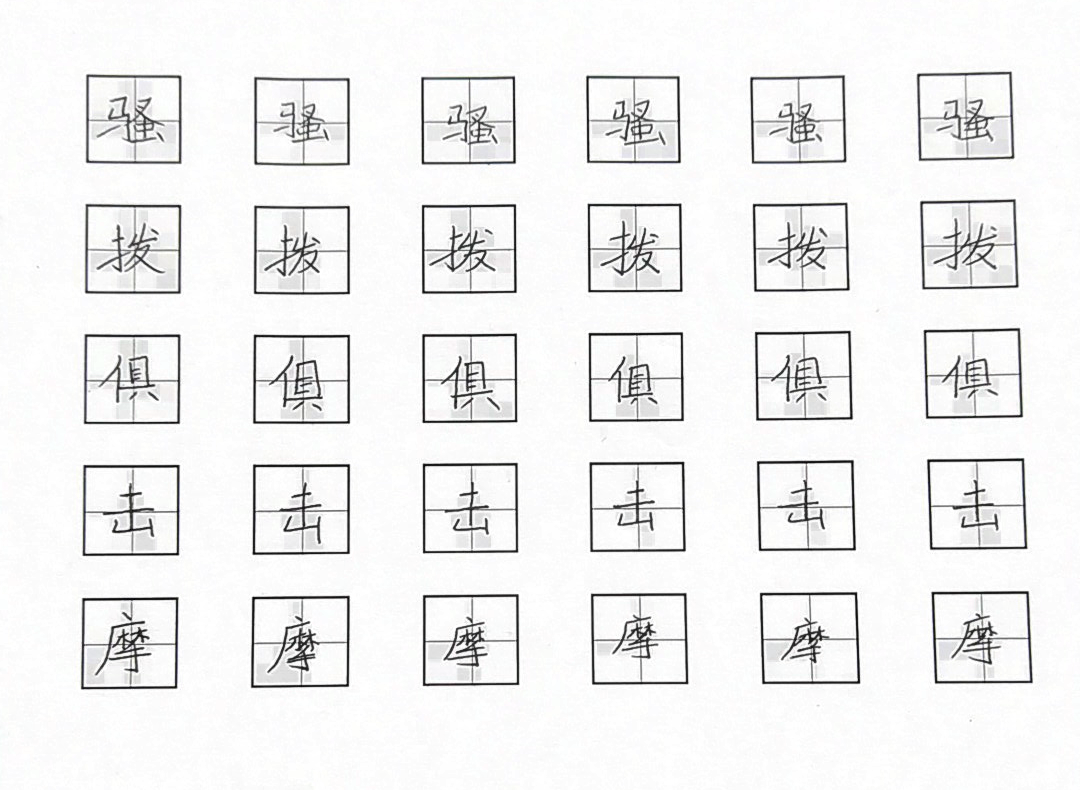 骚 骚 骚 骚 骚 骚
拨 拨 拨 拨 拨 拨
俱 俱 俱 俱 俱 俱
击 击 击 击 击 击
摩 摩 摩 摩 摩 摩